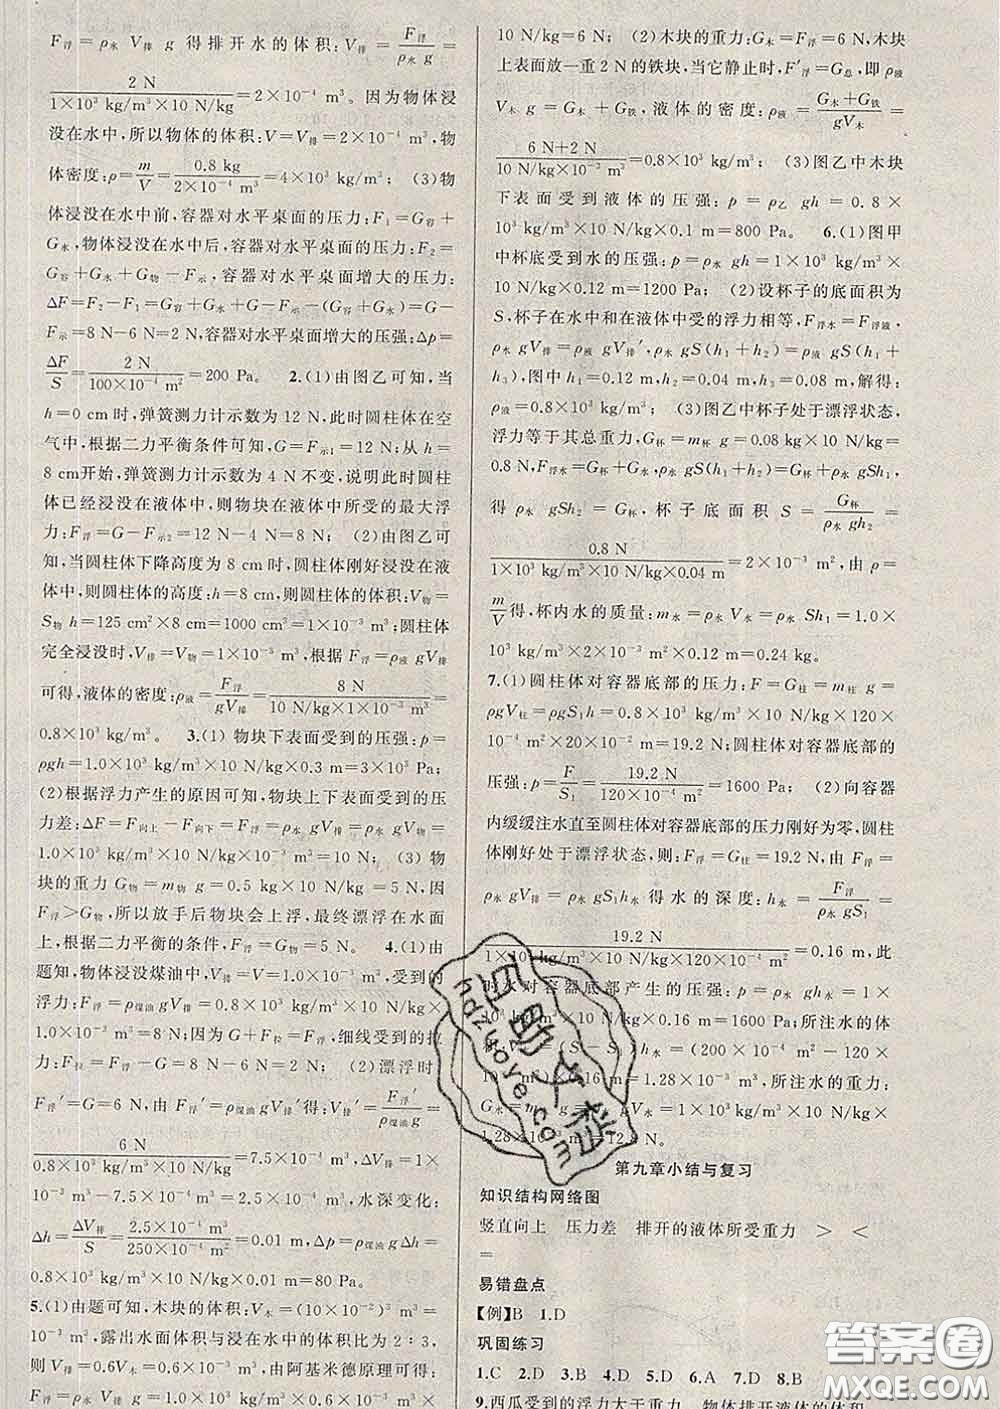 F浮=ρ水 V排 g 得排开水的体积:V排=F浮/ρ水 g=
2 N/1×10³ kg/m³×10 N/kg=2×10⁻⁴ m³。因为物体浸
没在水中,所以物体的体积:V=V排=2×10⁻⁴ m³,物
体密度:ρ=m/V=0.8 kg/2×10⁻⁴ m³=4×10³ kg/m³; (3)物
体浸没在水中前,容器对水平桌面的压力:F₁=G容+
G水,物体浸没在水中后,容器对水平桌面的压力:F₂=
G容+G水+G物-F示,容器对水平桌面增大的压力:
ΔF=F₂-F₁=G容+G水+G-F示-(G容+G水)=G-
F示=8 N-6 N=2 N,容器对水平桌面增大的压强:Δp=
ΔF/S=2 N/100×10⁻⁴ m²=200 Pa。 2.(1)由图乙可知,当
h=0 cm时,弹簧测力计示数为12 N,此时圆柱体在空
气中,根据二力平衡条件可知,G=F示1=12 N;从h=
8 cm开始,弹簧测力计示数为4 N不变,说明此时圆柱
体已经浸没在液体中,则物块在液体中所受的最大浮
力:F浮=G-F示2=12 N-4 N=8 N; (2)由图乙可
知,当圆柱体下降高度为8 cm时,圆柱体刚好浸没在液体
中,则圆柱体的高度:h=8 cm,圆柱体的体积:V物=
S物 h=125 cm²×8 cm=1000 cm³=1×10⁻³ m³;圆柱体
完全浸没时,V排=V物=1×10⁻³ m³,根据F浮=ρ液 gV排
可得,液体的密度:ρ液=F浮/gV排=8 N/10 N/kg×1×10⁻³ m³=
0.8×10³ kg/m³。 3.(1)物块下表面受到的压强:p=
ρgh=1.0×10³ kg/m³×10 N/kg×0.3 m=3×10³ Pa;
(2)根据浮力产生的原因可知,物块上下表面受到的压
力差:ΔF=F向上-F向下=F浮=ρ水 gV排=ρ水 gV物=
1.0×10³ kg/m³×10 N/kg×10⁻³ m³=10 N; (3)物
块的重力G物=m物 g=0.5 kg×10 N/kg=5 N,因
F浮>G物,所以放手后物块会上浮,最终漂浮在水面
上,根据二力平衡的条件,F浮=G物=5 N。 4.(1)由
题知,物体浸没煤油中,V排=V=1.0×10⁻³ m³,受到的
浮力:F浮=ρ煤油 gV排=0.8×10³ kg/m³×10 N/kg×
1.0×10⁻³ m³=8 N;因为G+F拉=F浮,细线受到的拉
力:F拉=F浮-G=8 N-6 N=2 N; (2)漂浮时,
F浮′=G=6 N,由F浮′=ρ煤油 gV排′得:V排′=F浮′/ρ煤油 g=
6 N/0.8×10³ kg/m³×10 N/kg=7.5×10⁻⁴ m³,ΔV排=1×
10⁻³ m³-7.5×10⁻⁴ m³=2.5×10⁻⁴ m³,水深变化:
Δh=ΔV排/S=2.5×10⁻⁴ m³/250×10⁻⁴ m²=0.01 m,Δp=ρ煤油 gΔh=
0.8×10³ kg/m³×10 N/kg×0.01 m=80 Pa。
5.(1)由题可知,木块的体积:V木=(10×10⁻²)³ m³=
10⁻³ m³,露出水面体积与浸在水中的体积比为2∶3,
则V排=0.6V木=0.6×10⁻³ m³,由阿基米德原理可得:
F浮=ρ水 gV排=1.0×10³ kg/m³×0.6×10⁻³ m³×
10 N/kg=6 N; (2)木块的重力:G木=F浮=6 N,木块
上表面放一重2 N的铁块,当它静止时,F′浮=G总,即ρ液
V木 g=G木+G铁,液体的密度:ρ液=G木+G铁/gV木=
6 N+2 N/10 N/kg×10⁻³ m³=0.8×10³ kg/m³; (3)图乙中木块
下表面受到液体的压强:p=ρ乙 gh=0.8×
10³ kg/m³×10 N/kg×0.1 m=800 Pa。 6.(1)图甲
中杯底受到水的压强:p=ρ水 gh=1×10³ kg/m³×
10 N/kg×0.12 m=1200 Pa; (2)设杯子的底面积为
S,杯子在水中和在液体中受的浮力相等,F浮水=F浮液,
ρ水 gV排=ρ液 gV排′,ρ水 gS(h₁+h₂)=ρ液 gS(h₁+
h₃),图中h₁=0.12 m,h₂=0.04 m,h₃=0.08 m,解得:
ρ液=0.8×10³ kg/m³; (3)图乙中杯子处于漂浮状态,
浮力等于其总重力,G杯=m杯 g=0.08 kg×10 N/kg=
0.8 N,F浮水=G杯+G水,ρ水 gS(h₁+h₂)=G杯+ρ水 gSh₁,
得ρ水 gSh₂=G杯,杯子底面积S=G杯/ρ水 gh₂=
0.8 N/1×10³ kg/m³×10 N/kg×0.04 m=2×10⁻³ m²,由ρ=
m/V得,杯内水的质量:m水=ρ水 V水=ρ水 Sh₁=1.0×
10³ kg/m³×2×10⁻³ m²×0.12 m=0.24 kg。
7.(1)圆柱体对容器底部的压力:F=G柱=m柱 g=
ρgV柱=ρgS₁h=0.8×10³ kg/m³×10 N/kg×120×
10⁻⁴ m²×20×10⁻² m=19.2 N;圆柱体对容器底部的
压强:p=F/S₁=19.2 N/120×10⁻⁴ m²=1600 Pa; (2)向容器
内缓缓注水直至圆柱体对容器底部的压力刚好为零,圆柱
体刚好处于漂浮状态,则:F浮=G柱=19.2 N,由F浮=
ρ水 gV排=ρ水 gS₁h水得水的深度:h水=F浮/ρ水 gS₁=
19.2 N/1×10³ kg/m³×10 N/kg×120×10⁻⁴ m²=0.16 m,此
时水对容器底部产生的压强:p=ρ水 gh水=1×
10³ kg/m³×10 N/kg×0.16 m=1600 Pa;所注水的体
(S-S₁)h水=(200×10⁻⁴-120×
0.16 m=1.28×10⁻³ m³,所注水的重力:
G水=
1.28×10⁻³ m³=12.8 N。
第九章小结与复习
知识结构网络图
竖直向上 压力差 排开的液体所受重力 > <
=
易错盘点
【例】B 1.D
巩固练习
1.C 2.D 3.B 4.D 5.D 6.A 7.D 8.B
9.西瓜受到的浮力大于重力 物体排开液体的体积
hdzuoye.com
答案圈
MXQE.COM